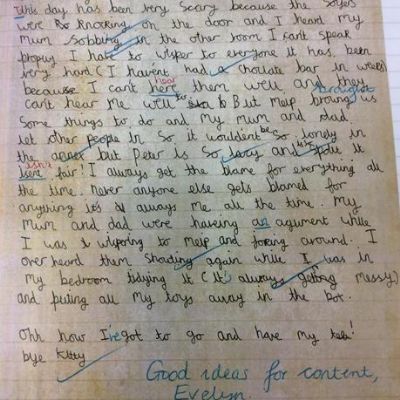 This day has been very scary because the solyers
were knocking on the door and I heard my
Mum Sobbing in the other room I can't speak
propuy I hate to wisper to everyone it has been
very hard (I haven't had a choclate bar in weeks)
hear
because I can't here them well and they
brought
can't hear me well to But meip broung us
Some things to do and my mum and dad.
Let other people in So it wouldent be So lonely in
the anex but Peter is So lazy and it's
isn't
fair! I always get the blame for everything all
the time. Never anyone else gets blamed for
anything it's always me all the time. My
Mum and dad were haveing an agument while
I was wispring to meip and around. I
over heard them Shouting again while I was in
my bedroom tidying it (it's always getting messy)
and puting all my toys away in the box.
Ohh now I've got to go and have my tea!
bye Kitty
Good ideas for content,
Evelyn.